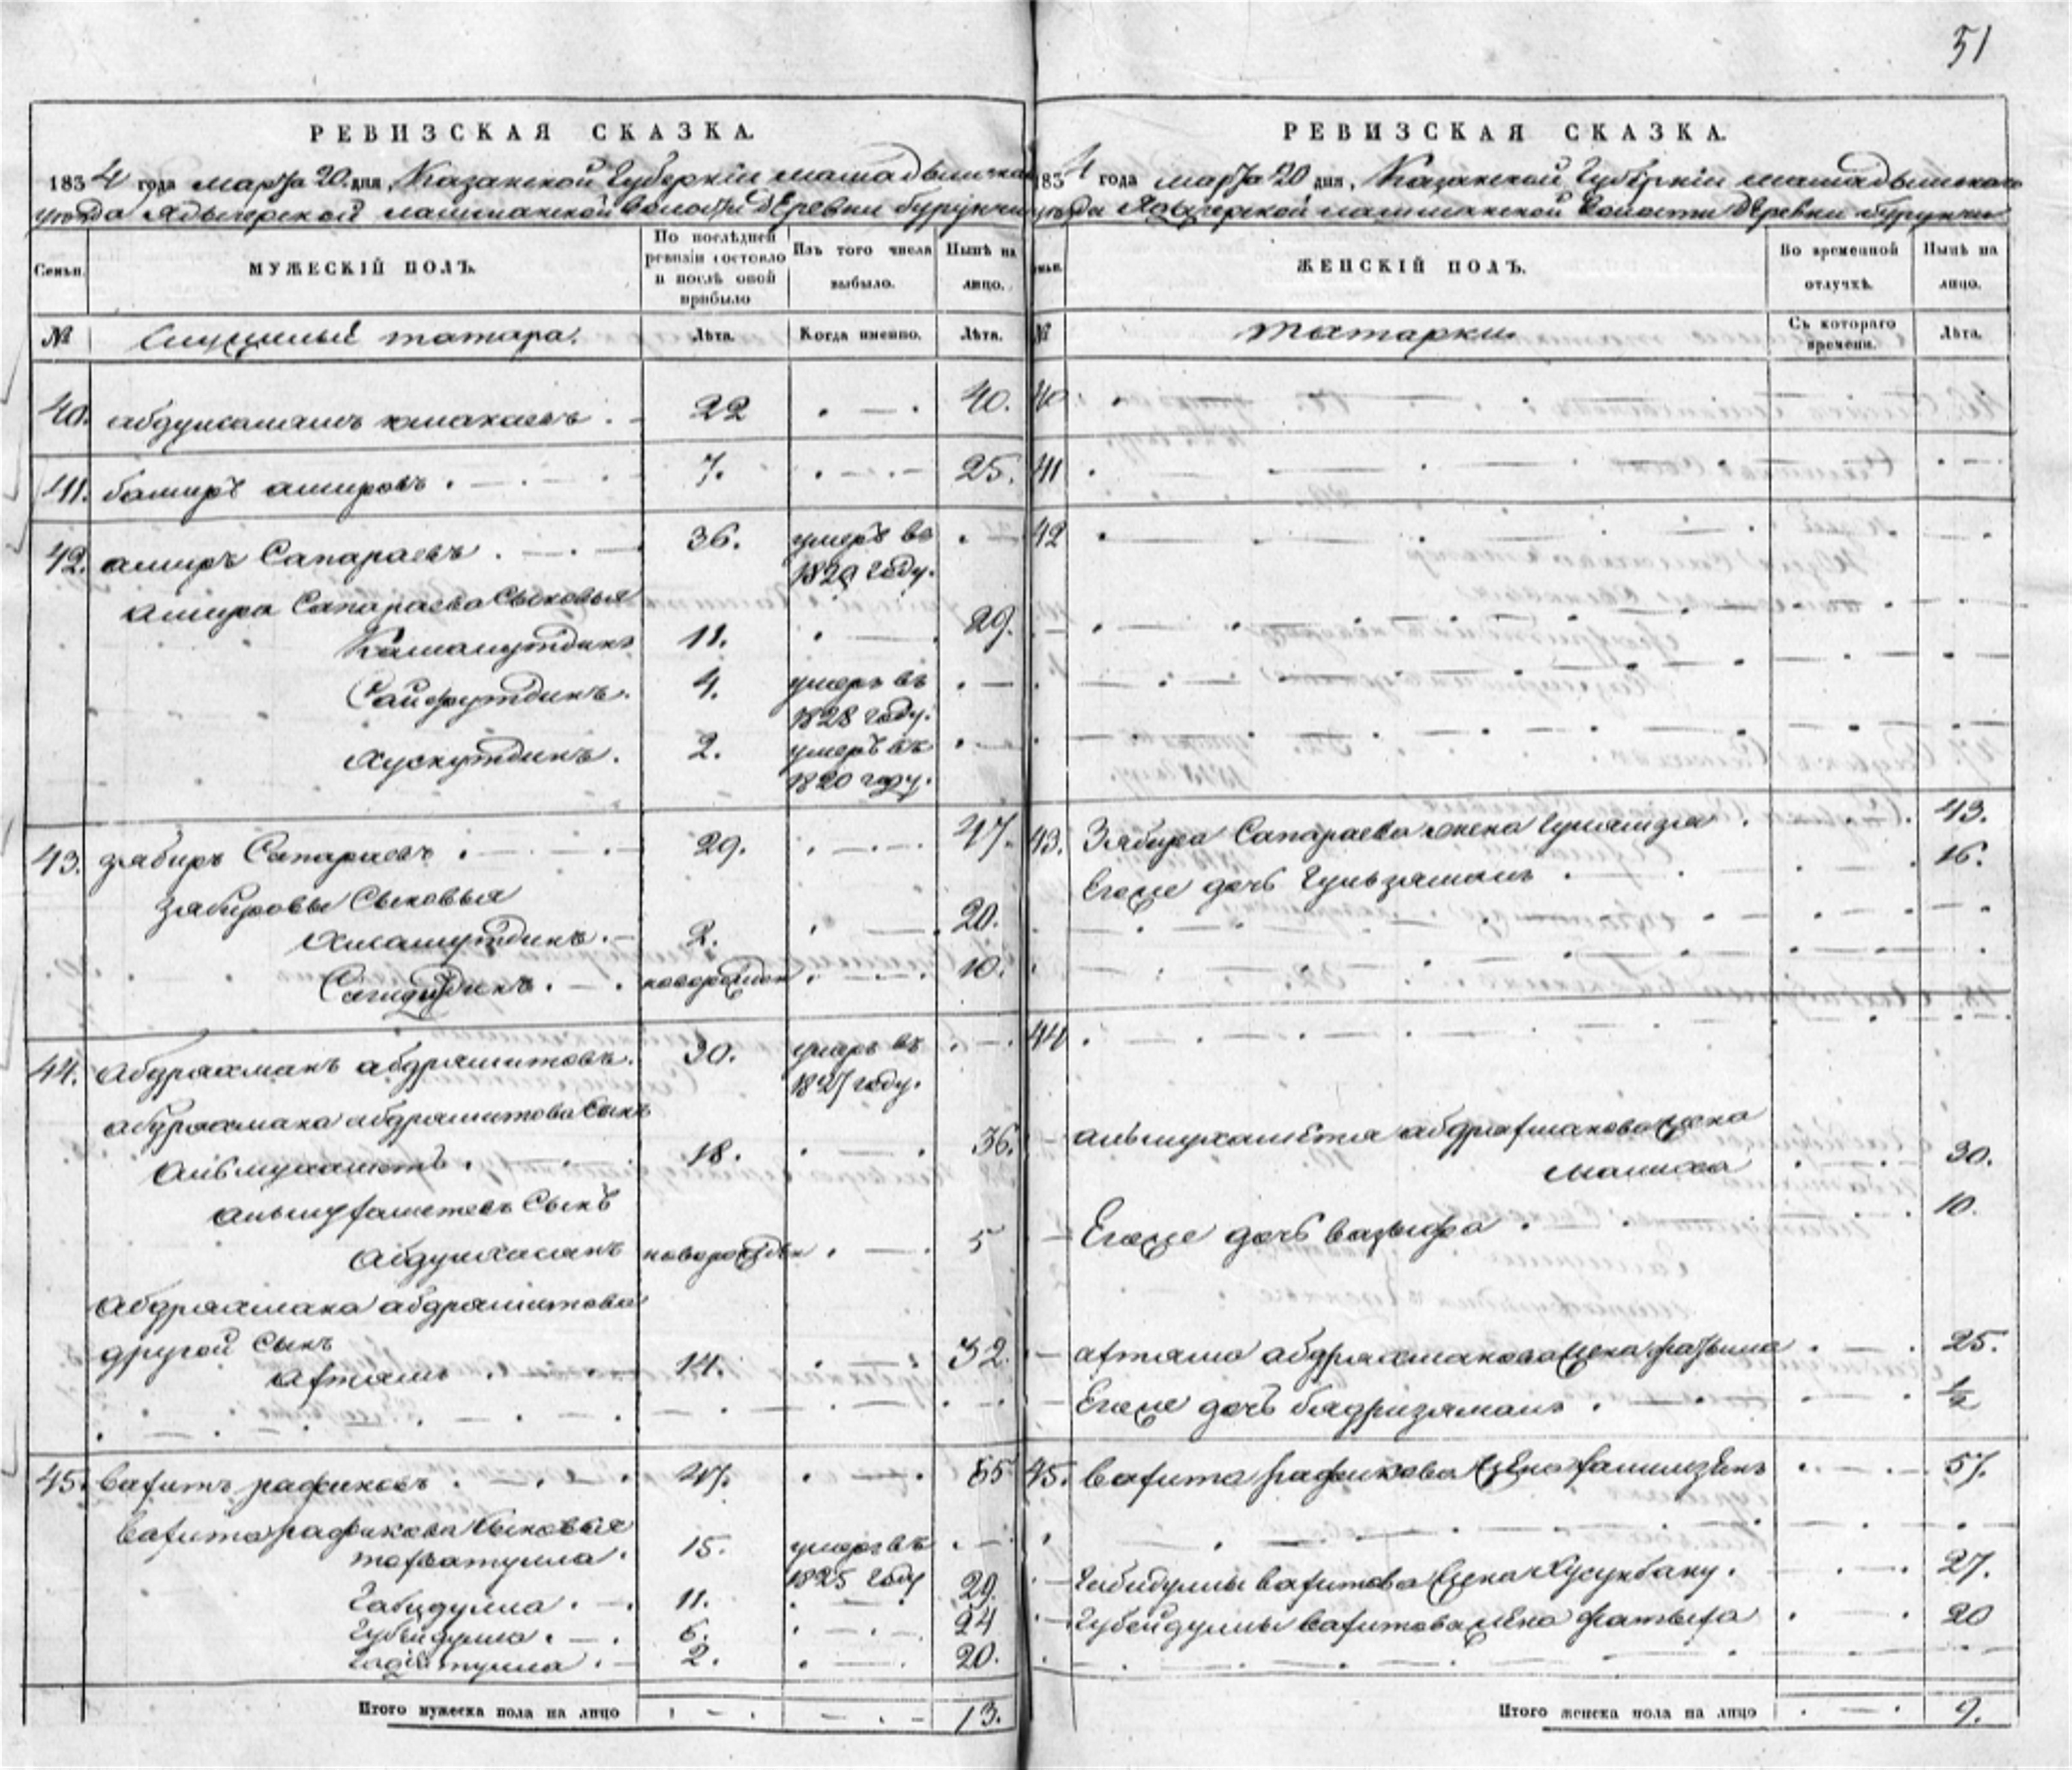 51
РЕВИЗСКАЯ СКАЗКА.
1834 года марта 20 дня, Казанской Губерніи мамадышскаго
уезда Ядыгерской лашманской волости деревни бурунчи
Семьи.
МУЖЕСКІЙ ПОЛЪ.
По послѣдней ревизіи состояло и послѣ оной прибыло
Изъ того числа выбыло.
Нынѣ на лицо.
№
татара.
Лѣта.
Когда именно.
Лѣта.
40. юмакаевъ 22 40.
41. баширъ амировъ 7. 25.
42. амиръ Сапараевъ 36. умеръ въ
1829 году.
амира Сапараева Сыновья
Камалутдинъ 11. 29.
Сайфутдинъ. 4. умеръ въ
1828 году.
Хуснутдинъ. 2. умеръ въ
1820 году.
43. зябиръ Сапараевъ 29. 47.
Зябировы Сыновья
2. 20.
новорожден 10.
44. абдрахманъ абдрашитовъ. 30. умеръ въ
1827 году.
абдрахмана абдрашитова Сынъ
альмухаметъ 18. 36.
альмухаметевъ Сынъ
новорожден 5
абдрахмана абдрашитова
другой Сынъ
ахтямъ 14. 32.
45. вахитъ рафиковъ 47. 65
вахита рафикова Сыновья
тохватулла. 15. умеръ въ
1825 году
Габидулла 11. 29.
Губейдулла 6. 24
2. 20.
Итого мужеска пола на лицо 13.
РЕВИЗСКАЯ СКАЗКА.
1834 года марта 20 дня, Казанской Губерніи мамадышскаго
уезда Ядыгерской лашманской волости деревни бурунчи
ЖЕНСКІЙ ПОЛЪ.
Во временной отлучкѣ.
Нынѣ на лицо.
№
татарки.
Съ котораго времени.
Лѣта.
40
41
42
43. Зябира Сапараева жена 43.
Егоже дочь Гульзямалъ 16.
44
альмухаметя абдрахманова жена
малиха 30.
Егоже дочь вазыфа 10.
ахтяма абдрахманова жена фатыма 25.
Егоже дочь бядризямалъ ½
45. вахита рафикова жена 57.
Габидуллы вахитова жена Хусунбану. 27.
Губейдуллы вахитова жена 20
Итого женска пола на лицо 9.